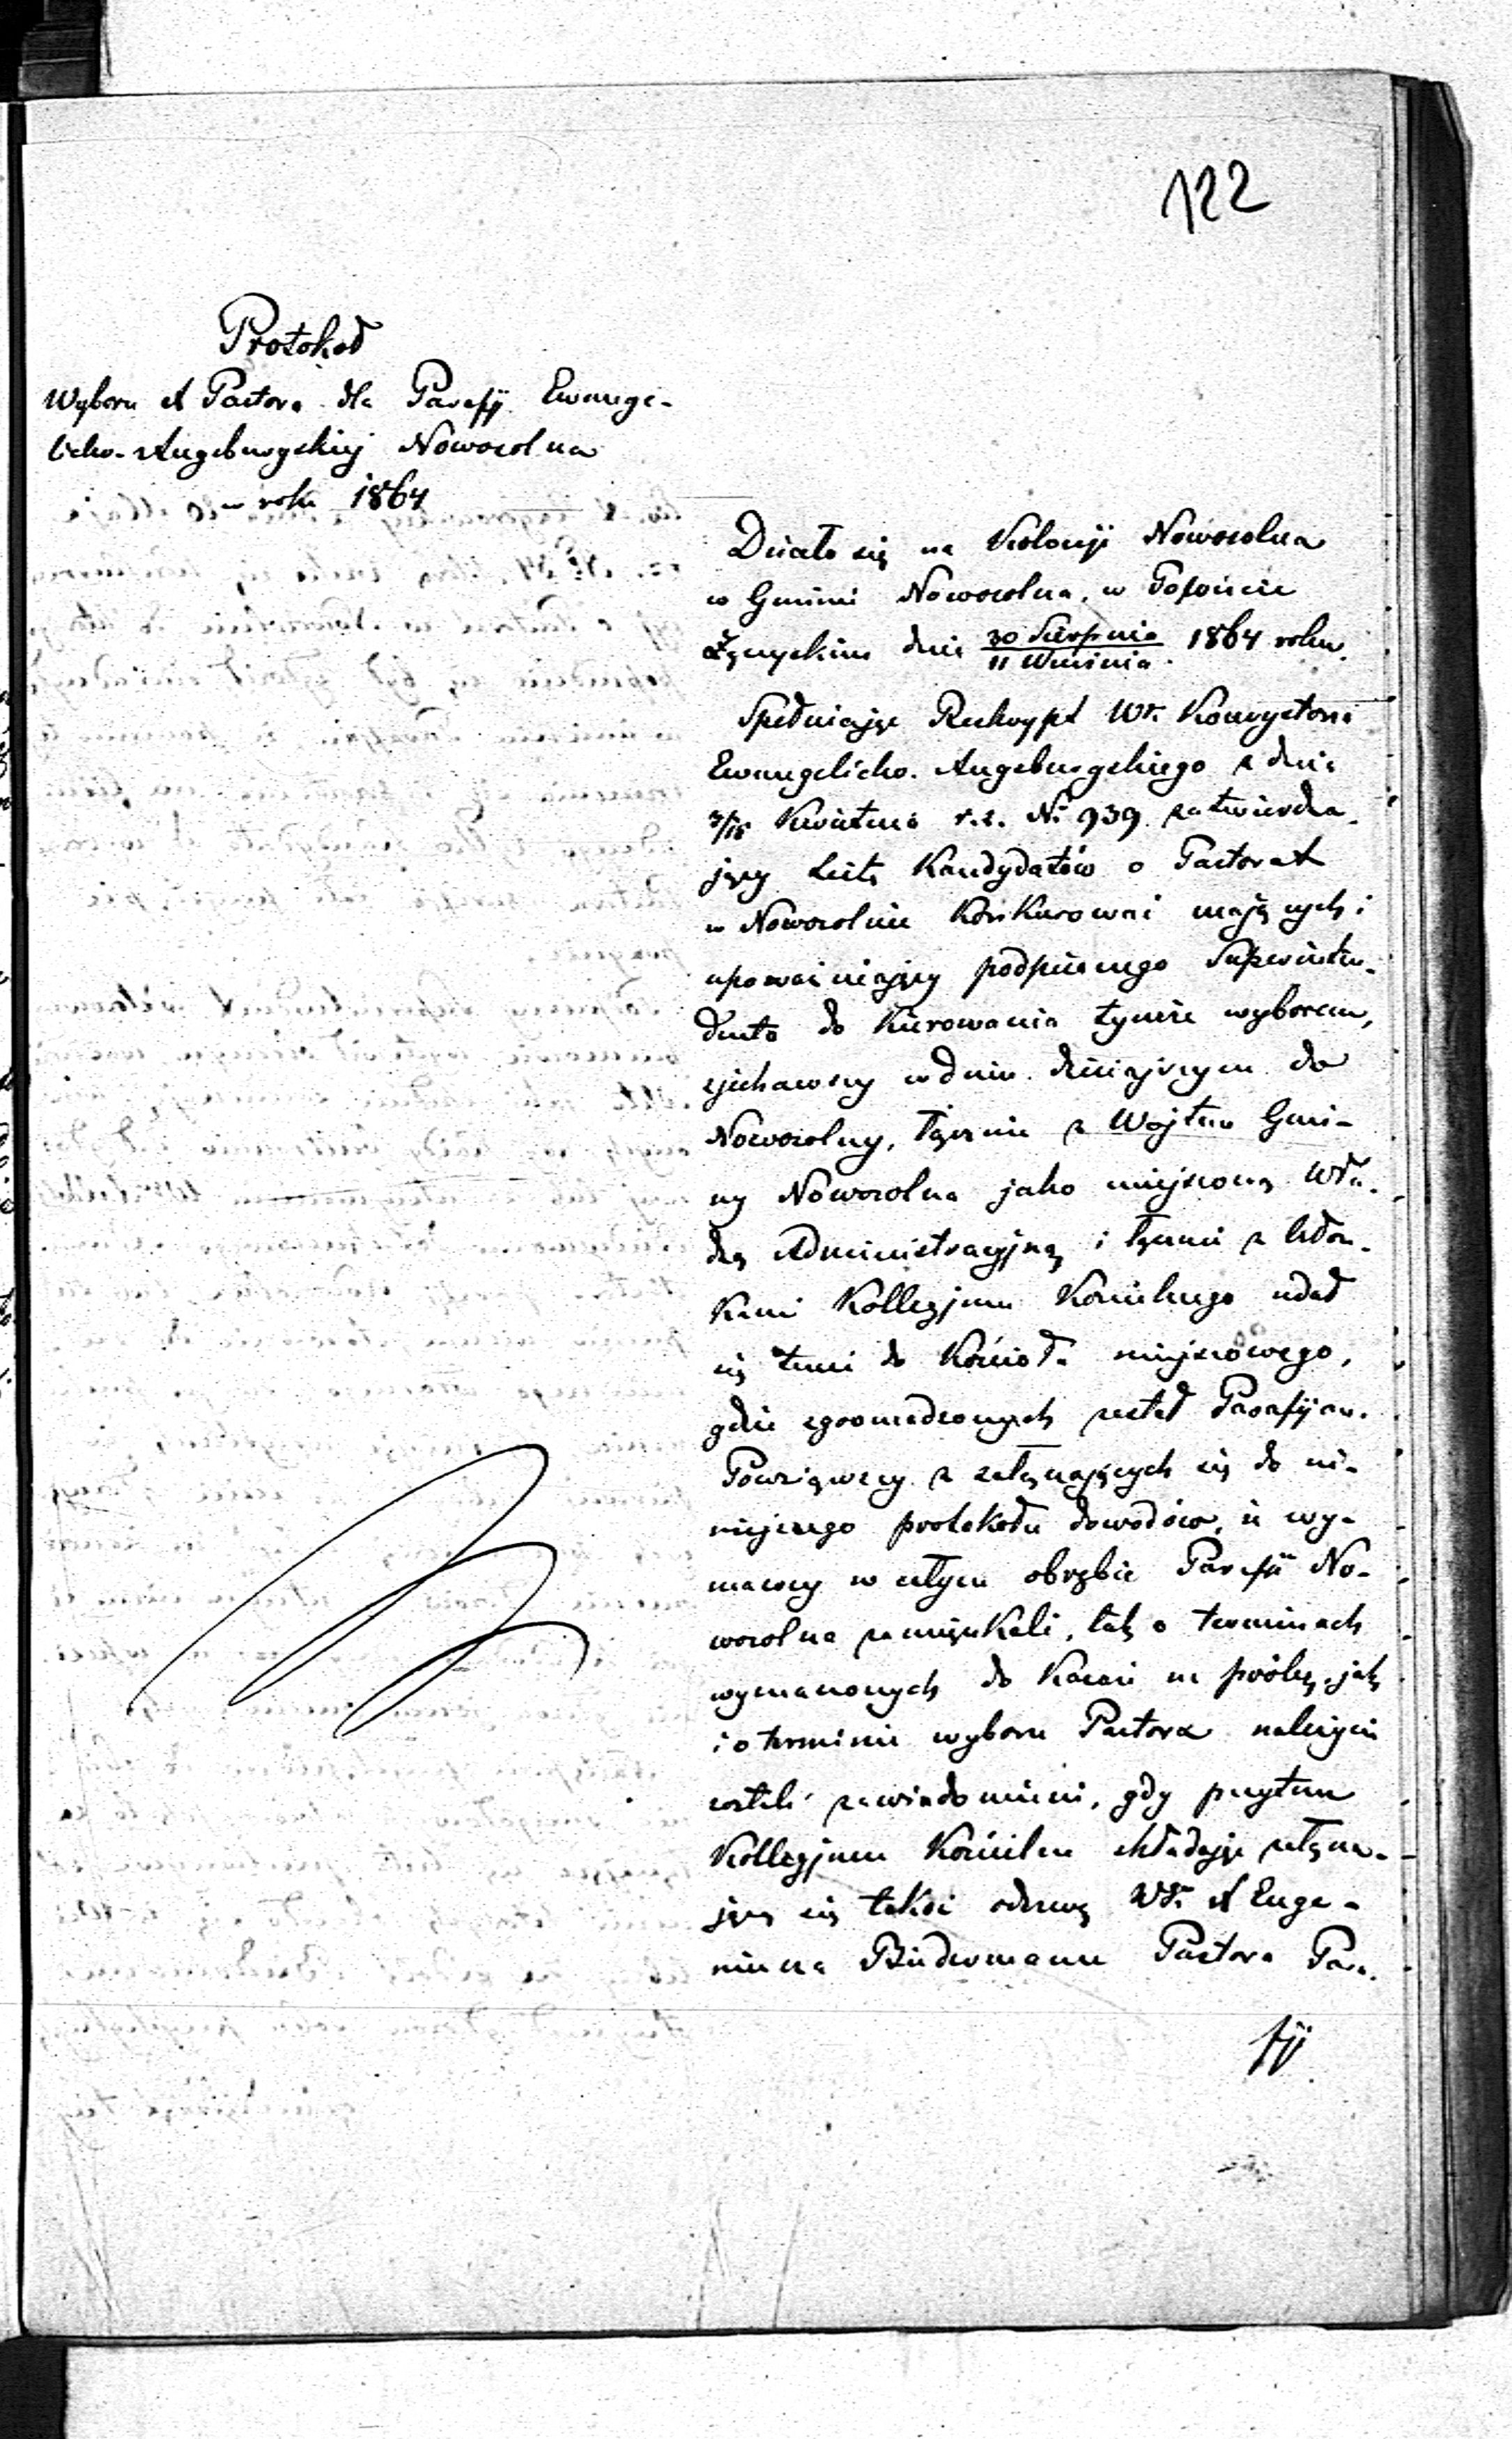 122
Protokoł
Wyboru X Pastora dla Parafji Ewange-
licko-Augsburgskiej Nowosolna
w roku 1864
Działo się na Kolonji Nowosolna
w Gminie Nowosolna, w Powiecie
Łęczyckim dnia 30 Sierpnia / 11 Września 1864 roku.
Spełniając Reskrypt Wł. Konsystorza
Ewangelicko-Augsburgskiego z dnia
3/15 Kwietnia r.z. N: 939 zatwierdza-
jący Listę Kandydatów o Pastorat
w Nowosolnie konkurować mających i
upoważniający podpisanego Superinten-
denta do kierowania tymże wyborem,
zjechawszy w dniu dzisiejszym do
Nowosolny, łącznie z Wójtem Gmi-
ny Nowosolna jako miejscową Wła-
dzą Administracyjną i łącznie z Człon-
kami Kollegjum Kościelnego udał
się do Kościoła miejscowego,
gdzie zgromadzonych zastał Parafjan.
Powziąwszy z załączających się do ni-
niejszego protokołu dowodów, iż wy-
znawcy w całym obrębie Parafji No-
wosolna zamieszkali, tak o terminach
wyznaczonych do kazań na próbę, jak
i o terminie wyboru Pastora należycie
zostali zawiadomieni, gdy przytem
Kollegjum Kościelne składając załącza-
jącą się także odezwę Wł. X Euge-
niusza Biedermann Pastora Para-
fji